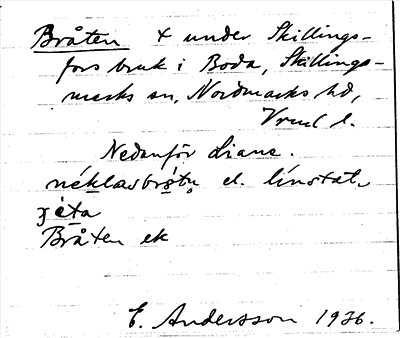 Bråten x under Skillings-
fors bruk i Boda, Skillings-
marks sn, Nordmarks hd,
Vrml l.
Nedanför Liane.
néklasbrǿtn̥ el. línstat
Bråten ek
E. Andersson 1936.